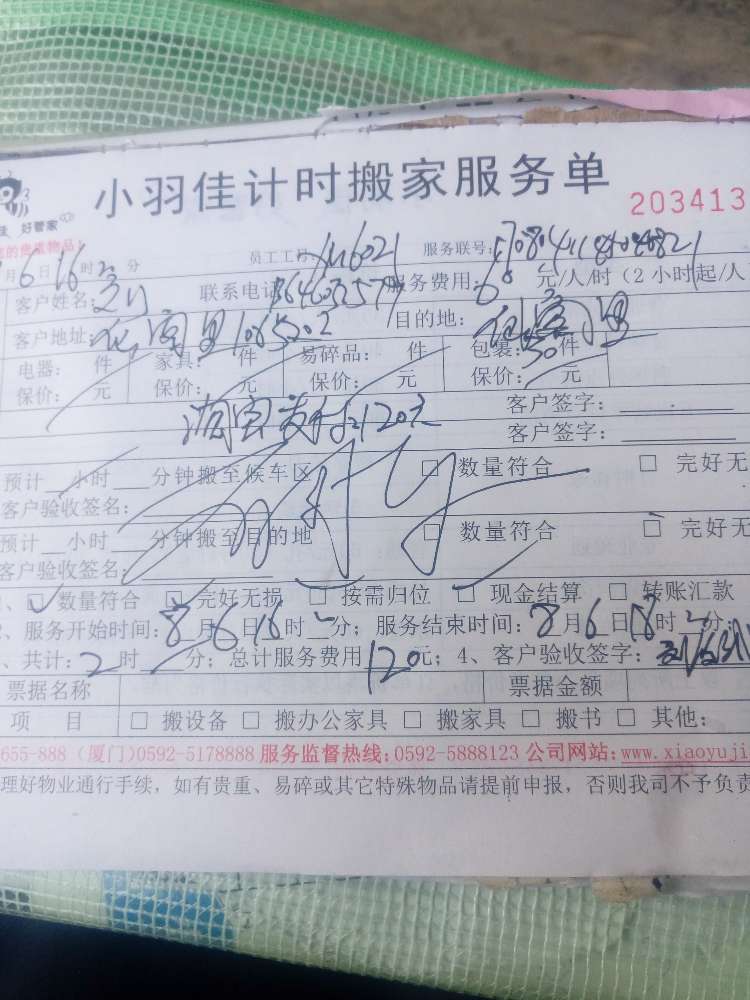 小羽佳计时搬家服务单
203413
佳 好管家
您的贵重物品!
月6日16时 分 员工工号: 服务联号:
客户姓名: 联系电话 服务费用: 元/人/时(2小时起/人
客户地址: 目的地:
电器: 件 家具: 件 易碎品: 件 包裹:30件
保价: 元 保价: 元 保价: 元 保价: 元
淘宝支付120元 客户签字:
客户签字:
预计 小时 分钟搬至候车区 □ 数量符合 □ 完好无
客户验收签名:
预计 小时 分钟搬至目的地 □ 数量符合 □ 完好无
客户验收签名:
、☑ 数量符合 ☑ 完好无损 □ 按需归位 □ 现金结算 □ 转账汇款
、服务开始时间:8月6日16时 分; 服务结束时间:8月6日18时 分;
、共计:2时 分; 总计服务费用120元; 4、客户验收签字:
票据名称 票据金额
项 目 □ 搬设备 □ 搬办公家具 □ 搬家具 □ 搬书 □ 其他:
655-888 (厦门)0592-5178888 服务监督热线:0592-5888123 公司网站:www.xiaoyuji
理好物业通行手续,如有贵重、易碎或其它特殊物品请提前申报,否则我司不予负责